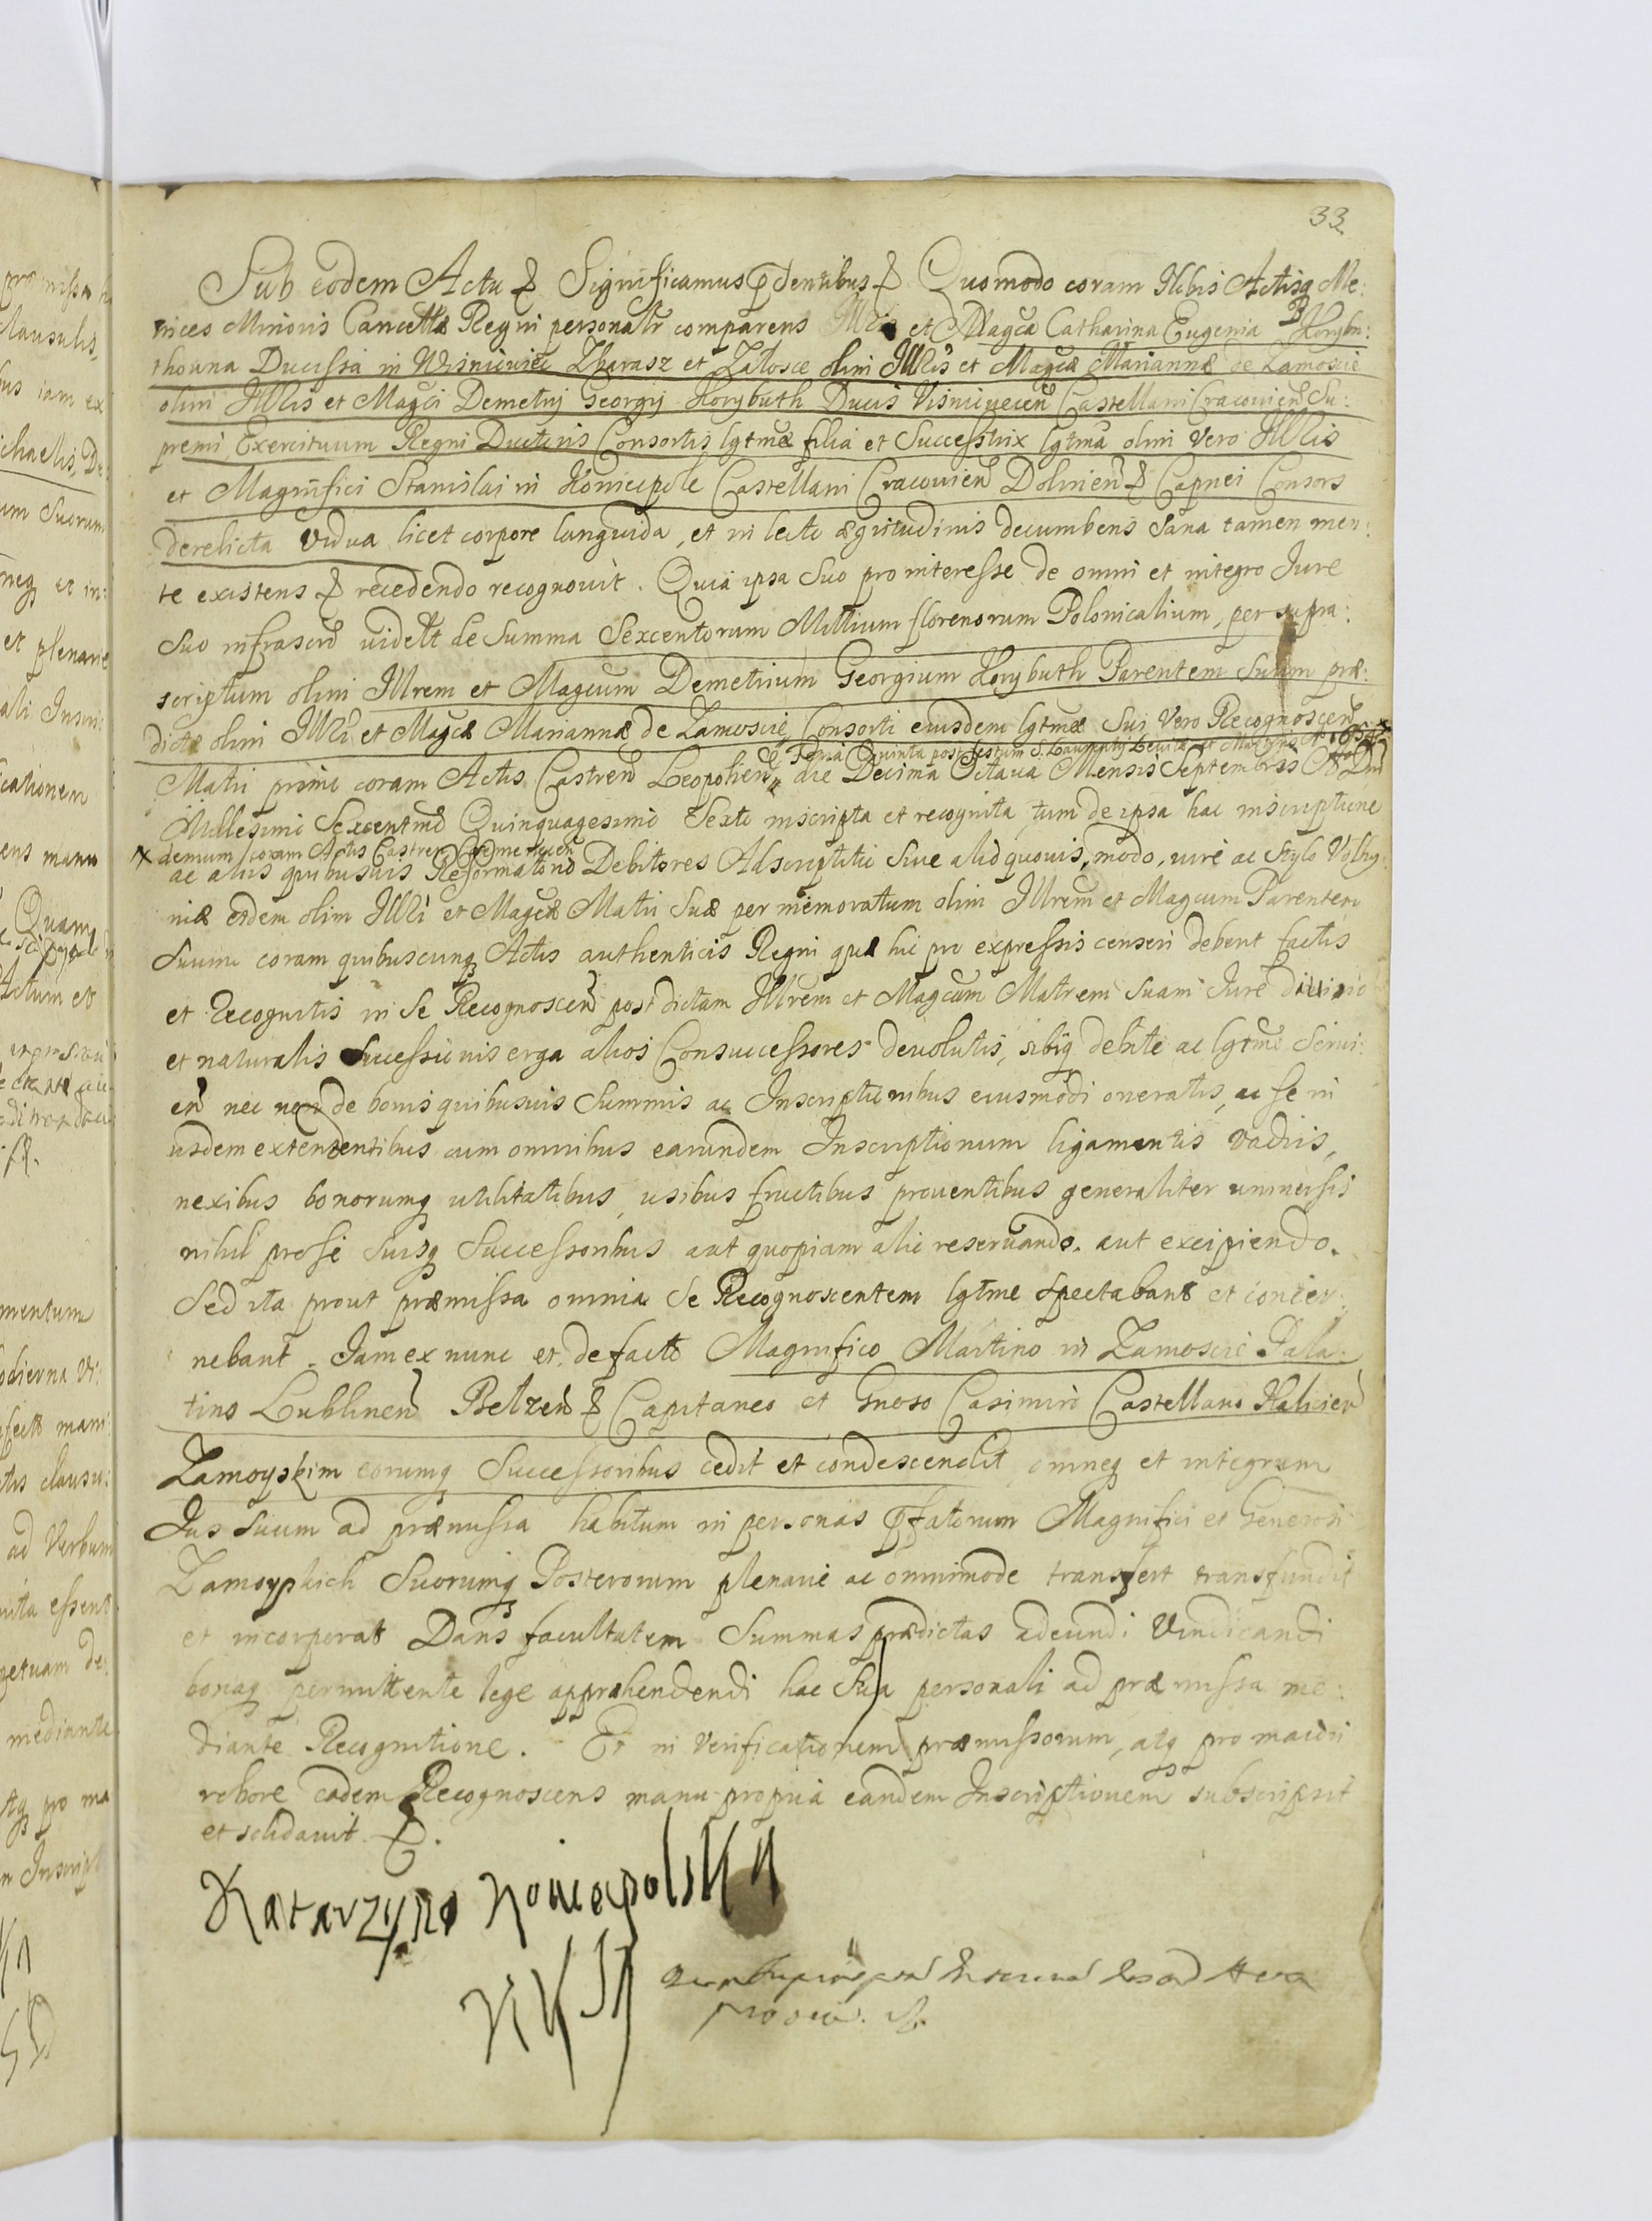 33
Sub eodem Actu & Significamus p̄sentibus & Quomodo coram Nobis Actisq Me:
trices Minoris Cancellæ Regni personalr comparens Illris et Magca Catharina Eugenia Korybu:
thouna Ducissa in Wisniowiec Zbarasz et Zalosce olim Illris et Magcæ Mariannæ de Zamoscie
olim Illris et Magci Demetrij Georgij Korybuth Ducis Visniouecen Castellani Cracouien Su:
premi Exercituum Regni Ductoris Consortis lgtmæ filia et Successtrix lgtma olim vero Illris
et Magnifici Stanislai in Koniecpole Castellani Cracouien Dolinen & Capnei Consors
derelicta Vidua licet corpore languida, et in lecto ægritudinis decumbens sana tamen men:
te existens & recedendo recognouit. Quia ipsa suo pro interesse de omni et integro Jure
suo infrascrō uidelt de summa Sexcentorum Millium florenorum Polonicalium, per supra:
scriptum olim Illrem et Magcum Demetrium Georgium Korybuth Parentem suum præ:
dictæ olim Illri et Magcæ Mariannæ de Zamoscie, Consorti eiusdem lgtmæ Sui vero Recognoscen
Feria Quinta post festum S. Laurentij Leuitæ et Martyris Ao 1654
Matri primo coram Actis Castren Leopolien die Decima Octaua Mensis Septembris Ao Dni
Millesimo Sexcentmo Quinquagesimo Sexto inscripta et recognita, tum de ipsa hac inscriptione
demum coram Actis Castren
ac alijs quibusuis Reformatorio Debitores Adscriptitio siue alio quouis modo, iure ac stylo Volhy:
niæ eidem olim Illri et Magcæ Matri suæ per memoratum olim Illrem et Magcum Parentem
suum coram quibuscunq Actis authenticis Regni quæ hic pro expressis censeri debent factis
et recognitis in se Recognoscen post dictam Illrem et Magcam Matrem suam Jure diuino
et naturalis successionis erga alios Consuccessores deuolutis, sibiq debite ac lgtme serui:
en nec non de bonis quibusuis summis ac Inscriptionibus eiusmodi oneratis, ac se in
iisdem extendentibus cum omnibus earundem Inscriptionum ligamentis vadiis,
nexibus bonorumq utilitatibus, usibus fructibus prouentibus generaliter uniuersis
nihil pro se suisq Successoribus aut quopiam alio reseruando. aut excipiendo.
Sed ita prout præmissa omnia se Recognoscentem lgtme spectabant et concer:
nebant. Jam ex nunc et de facto Magnifico Martino in Zamoscie Pala:
tino Lublinen Belzen & Capitaneo et Gnoso Casimiro Castellano Halicien
Zamoyskim eorumq Successoribus cedit et condescendit omneq et integrum
Jus suum ad præmissa habitum in personas p̄fatorum Magnifici et Generosi
Zamoyskich Suorumq Posterorum plenarie ac omnimode transfert transfundit
et incorporat Dans facultatem Summas prædictas adeundi Vindicandi
bonaq permittente lege apprahendendi hac sua personali ad præmissa me:
diante Recognitione. Et in verificationem præmissorum, atq pro maiori
robore eadem Recognoscens manu propria eandem Inscriptionem subscripsit
et solidauit &.
Katarzyna Koniecpolska